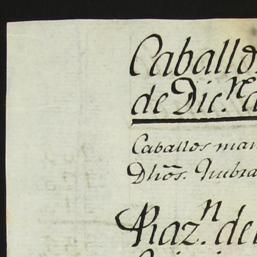 Caballo
de Dic.re
Caballos man
Dhōs. Inebra
Raz.n de